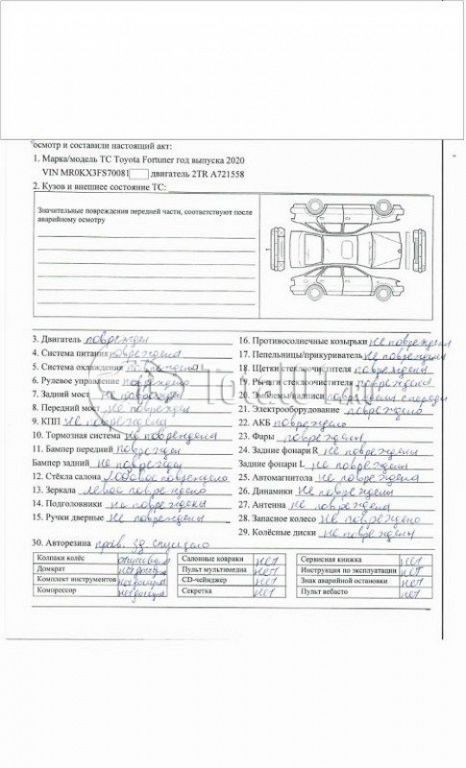 осмотр и составили настоящий акт:
1. Марка/модель ТС Toyota Fortuner год выпуска 2020
VIN MR0KX3FS70081 двигатель 2TR A721558
2. Кузов и внешнее состояние ТС:
Значительные повреждения передней части, соответствуют после аварийному осмотру
3. Двигатель поврежден
4. Система питания повреждена
5. Система охлаждения повреждена
6. Рулевое управление повреждено
7. Задний мост не поврежден
8. Передний мост не поврежден
9. КПП не повреждена
10. Тормозная система не повреждена
11. Бампер передний поврежден
Бампер задний не поврежден
12. Стёкла салона лобовое повреждено
13. Зеркала левое повреждено
14. Подголовники не повреждены
15. Ручки дверные не повреждены
16. Противосолнечные козырьки не повреждены
17. Пепельницы/прикуриватель не повреждены
18. Щетки стеклоочистителя повреждены
19. Рычаги стеклоочистителя повреждены
20. Эмблемы/надписи спереди
21. Электрооборудование повреждено
22. АКБ повреждено
23. Фары повреждены
24. Задние фонари R не повреждены
Задние фонари L не повреждены
25. Автомагнитола не повреждена
26. Динамики не повреждены
27. Антенна не повреждена
28. Запасное колесо не повреждено
29. Колёсные диски не повреждены
30. Авторезина прав. зд. спущено
Колпаки колёс
Домкрат
Комплект инструментов
Компрессор
Салонные коврики нет
Пульт мультимедиа нет
CD-чейнджер нет
Секретка нет
Сервисная книжка нет
Инструкция по эксплуатации нет
Знак аварийной остановки нет
Пульт вебасто нет